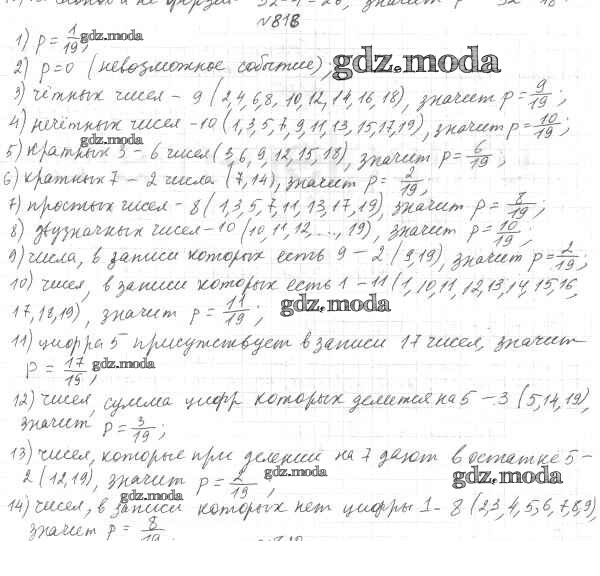 №818
1) p = 1/19; gdz.moda
2) p=0 (невозможное событие); gdz.moda
3) чётных чисел - 9 (2,4,6,8, 10,12,14,16,18), значит p = 9/19;
4) нечётных чисел -10 (1,3,5,7,9,11,13,15,17,19), значит p = 10/19;
gdz.moda
5) кратных 3 - 6 чисел (3,6,9,12,15,18), значит p = 6/19;
6) кратных 7 - 2 числа (7,14), значит p = 2/19;
7) простых чисел - 8 (1,3,5,7,11,13,17,19), значит p = 8/19;
8) двузначных чисел -10 (10,11,12,..., 19), значит p = 10/19;
9) числа, в записи которых есть 9 - 2 (9,19), значит p = 2/19;
10) чисел, в записи которых есть 1 - 11 (1,10,11,12,13,14,15,16,
17,18,19), значит p = 11/19; gdz.moda
11) цифра 5 присутствует в записи 17 чисел, значит
p = 17/19; gdz.moda
12) чисел, сумма цифр которых делится на 5 - 3 (5,14,19),
значит p = 3/19;
13) чисел, которые при делении на 7 дают в остатке 5 -
2 (12,19), значит p = 2/19; gdz.moda gdz.moda
gdz.moda
14) чисел, в записи которых нет цифры 1 - 8 (2,3,4,5,6,7,8,9),
значит p = 8/19